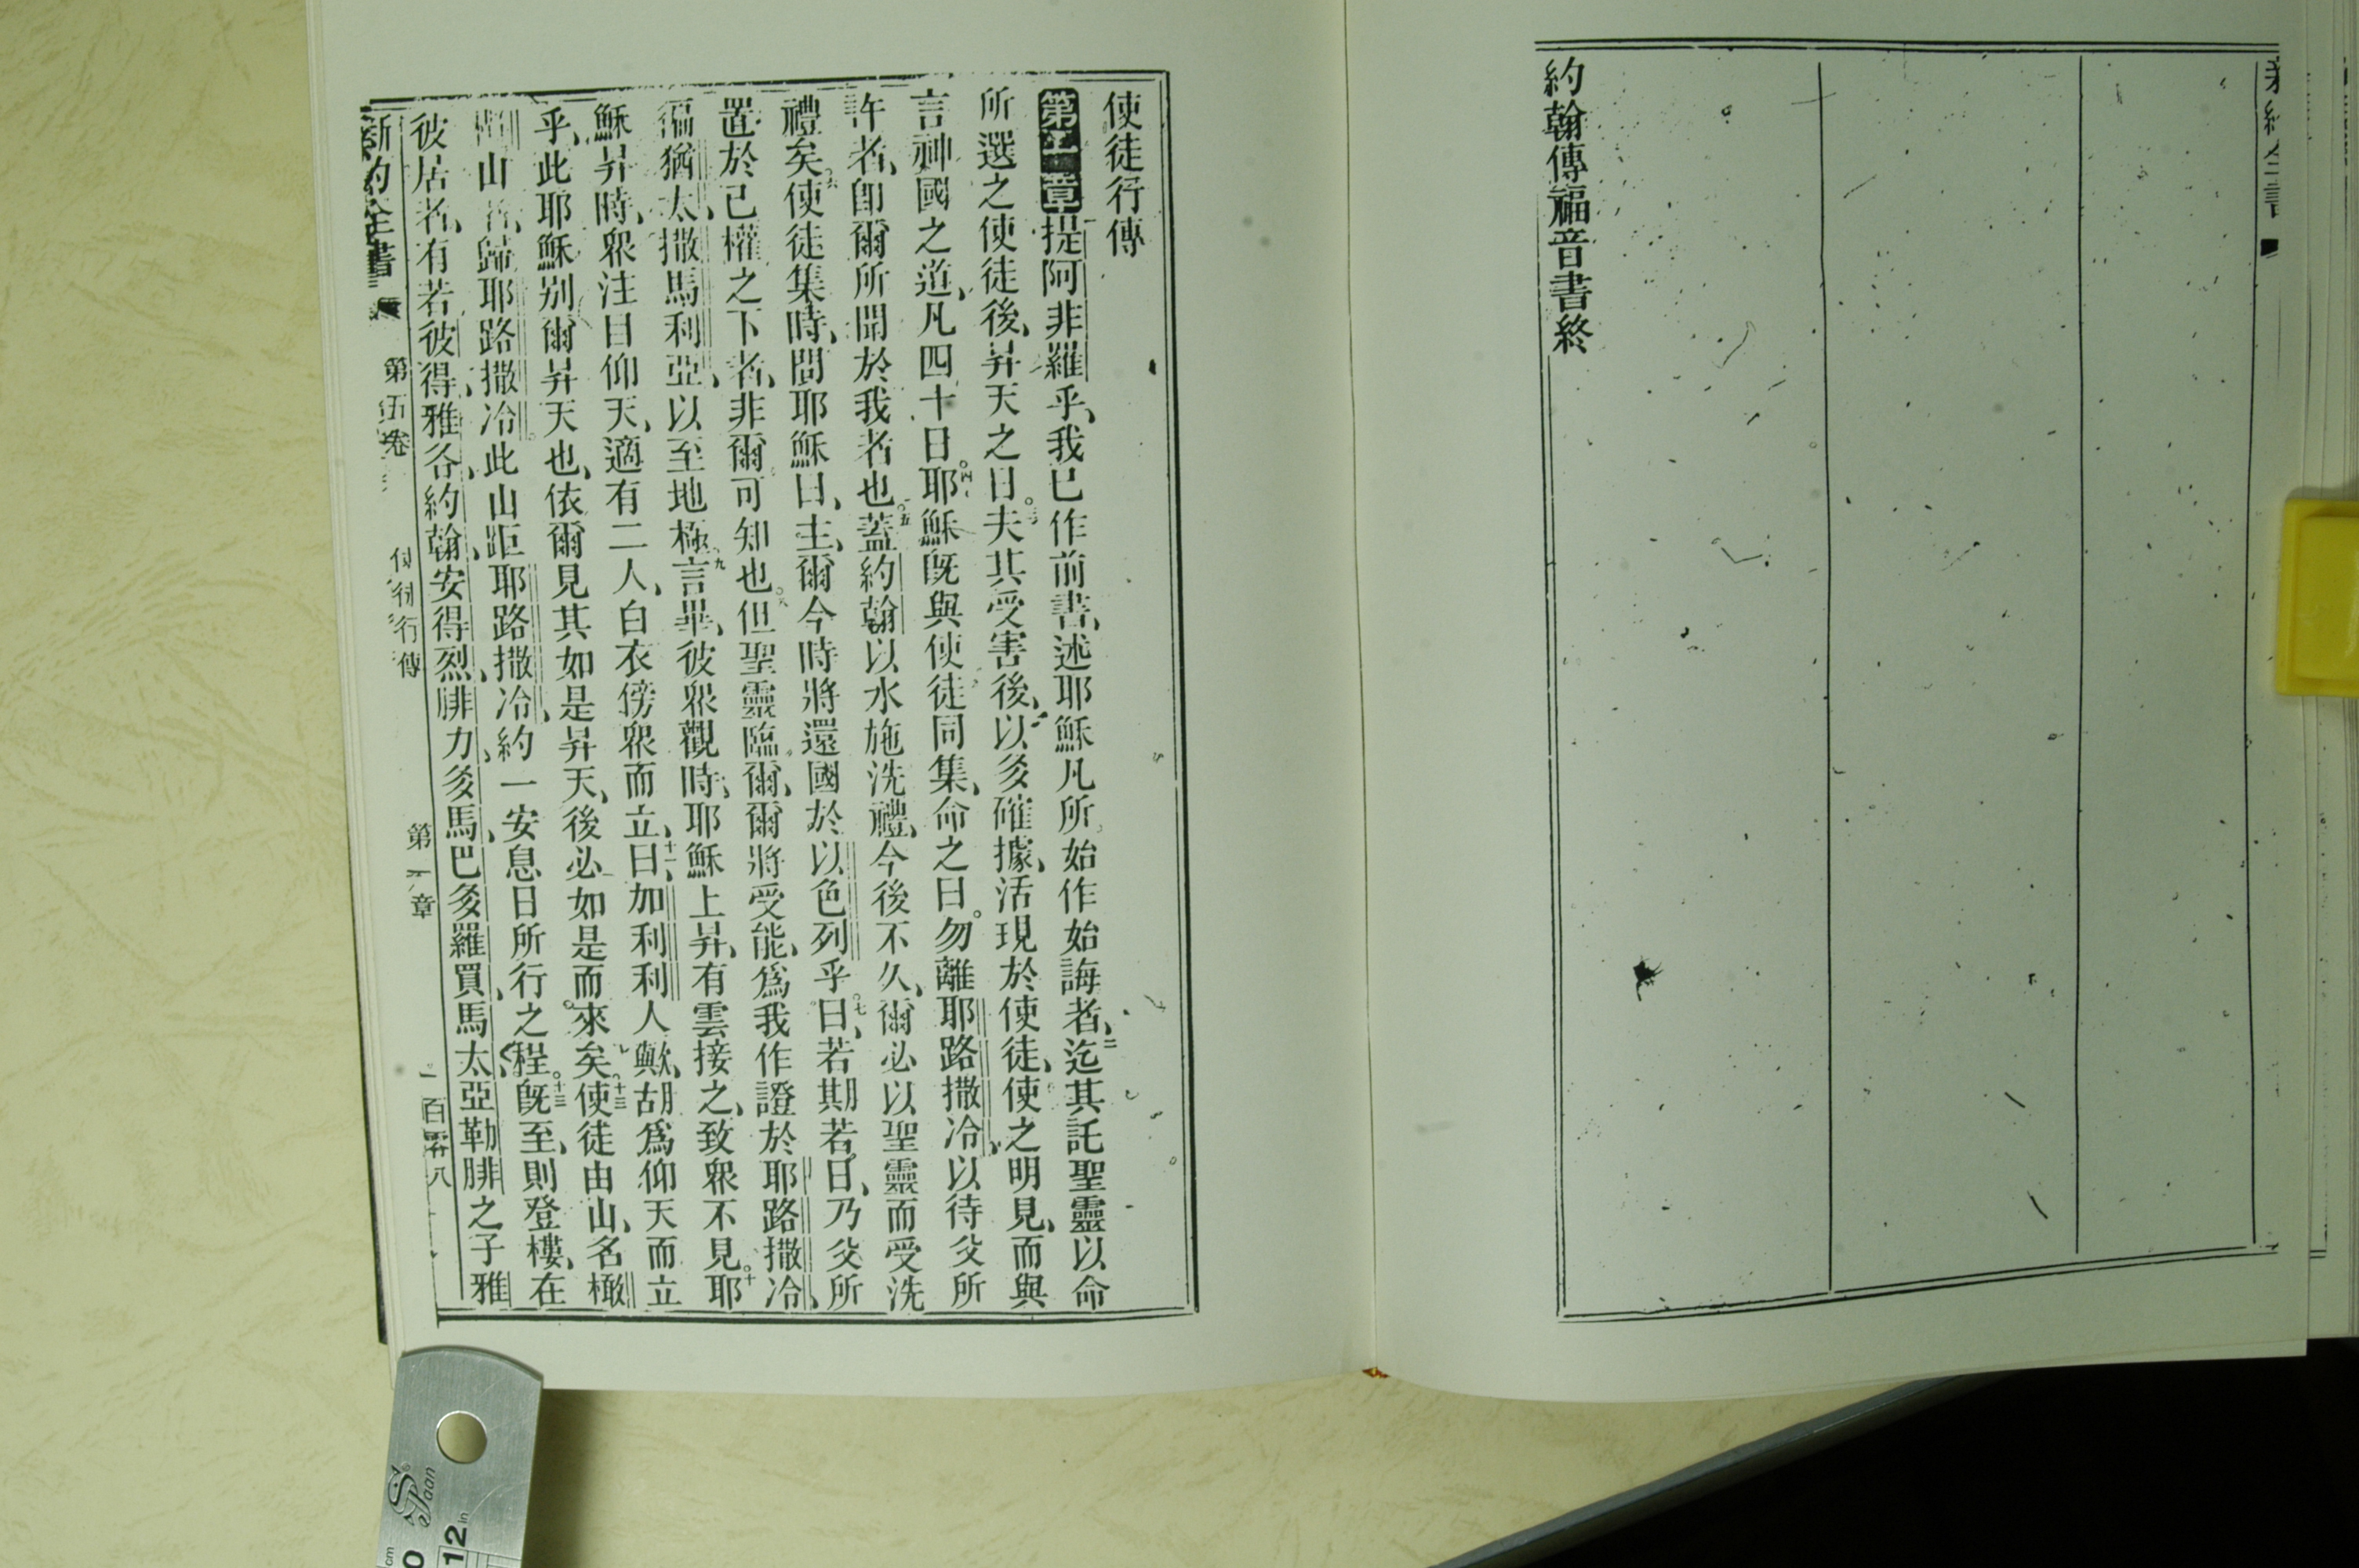 約翰傳福音書終
使徒行傳
第一章提阿非羅乎、我已作前書、述耶穌凡所始作始誨者、二迄其託聖靈以命
所選之使徒後、昇天之日。三夫其受害後、以多確據、活現於使徒、使之明見、而與
言神國之道、凡四十日。四耶穌旣與使徒同集、命之曰。勿離耶路撒冷、以待父所
許者、卽爾所聞於我者也。五蓋約翰以水施洗禮、今後不久、爾必以聖靈而受洗
禮矣。六使徒集時、問耶穌曰、主、爾今時將還國於以色列乎。七曰、若期若日、乃父所
置於己權之下者、非爾可知也。八但聖靈臨爾、爾將受能、爲我作證於耶路撒冷、
徧猶太、撒馬利亞、以至地極。九言畢、彼衆觀時、耶穌上昇、有雲接之、致衆不見。十耶
穌昇時、衆注目仰天、適有二人、白衣傍衆而立、十一曰、加利利人歟、胡爲仰天而立
乎、此耶穌別爾昇天也、依爾見其如是昇天、後必如是而來矣。十二使徒由山、名橄
山者、歸耶路撒冷。此山距耶路撒冷、約一安息日所行之程。十三旣至、則登樓、在
彼居者、有若彼得、雅各、約翰、安得烈、腓力、多馬、巴多羅買、馬太、亞勒腓之子雅
新約全書 第五卷 使徒行傳 第一章 一百零八